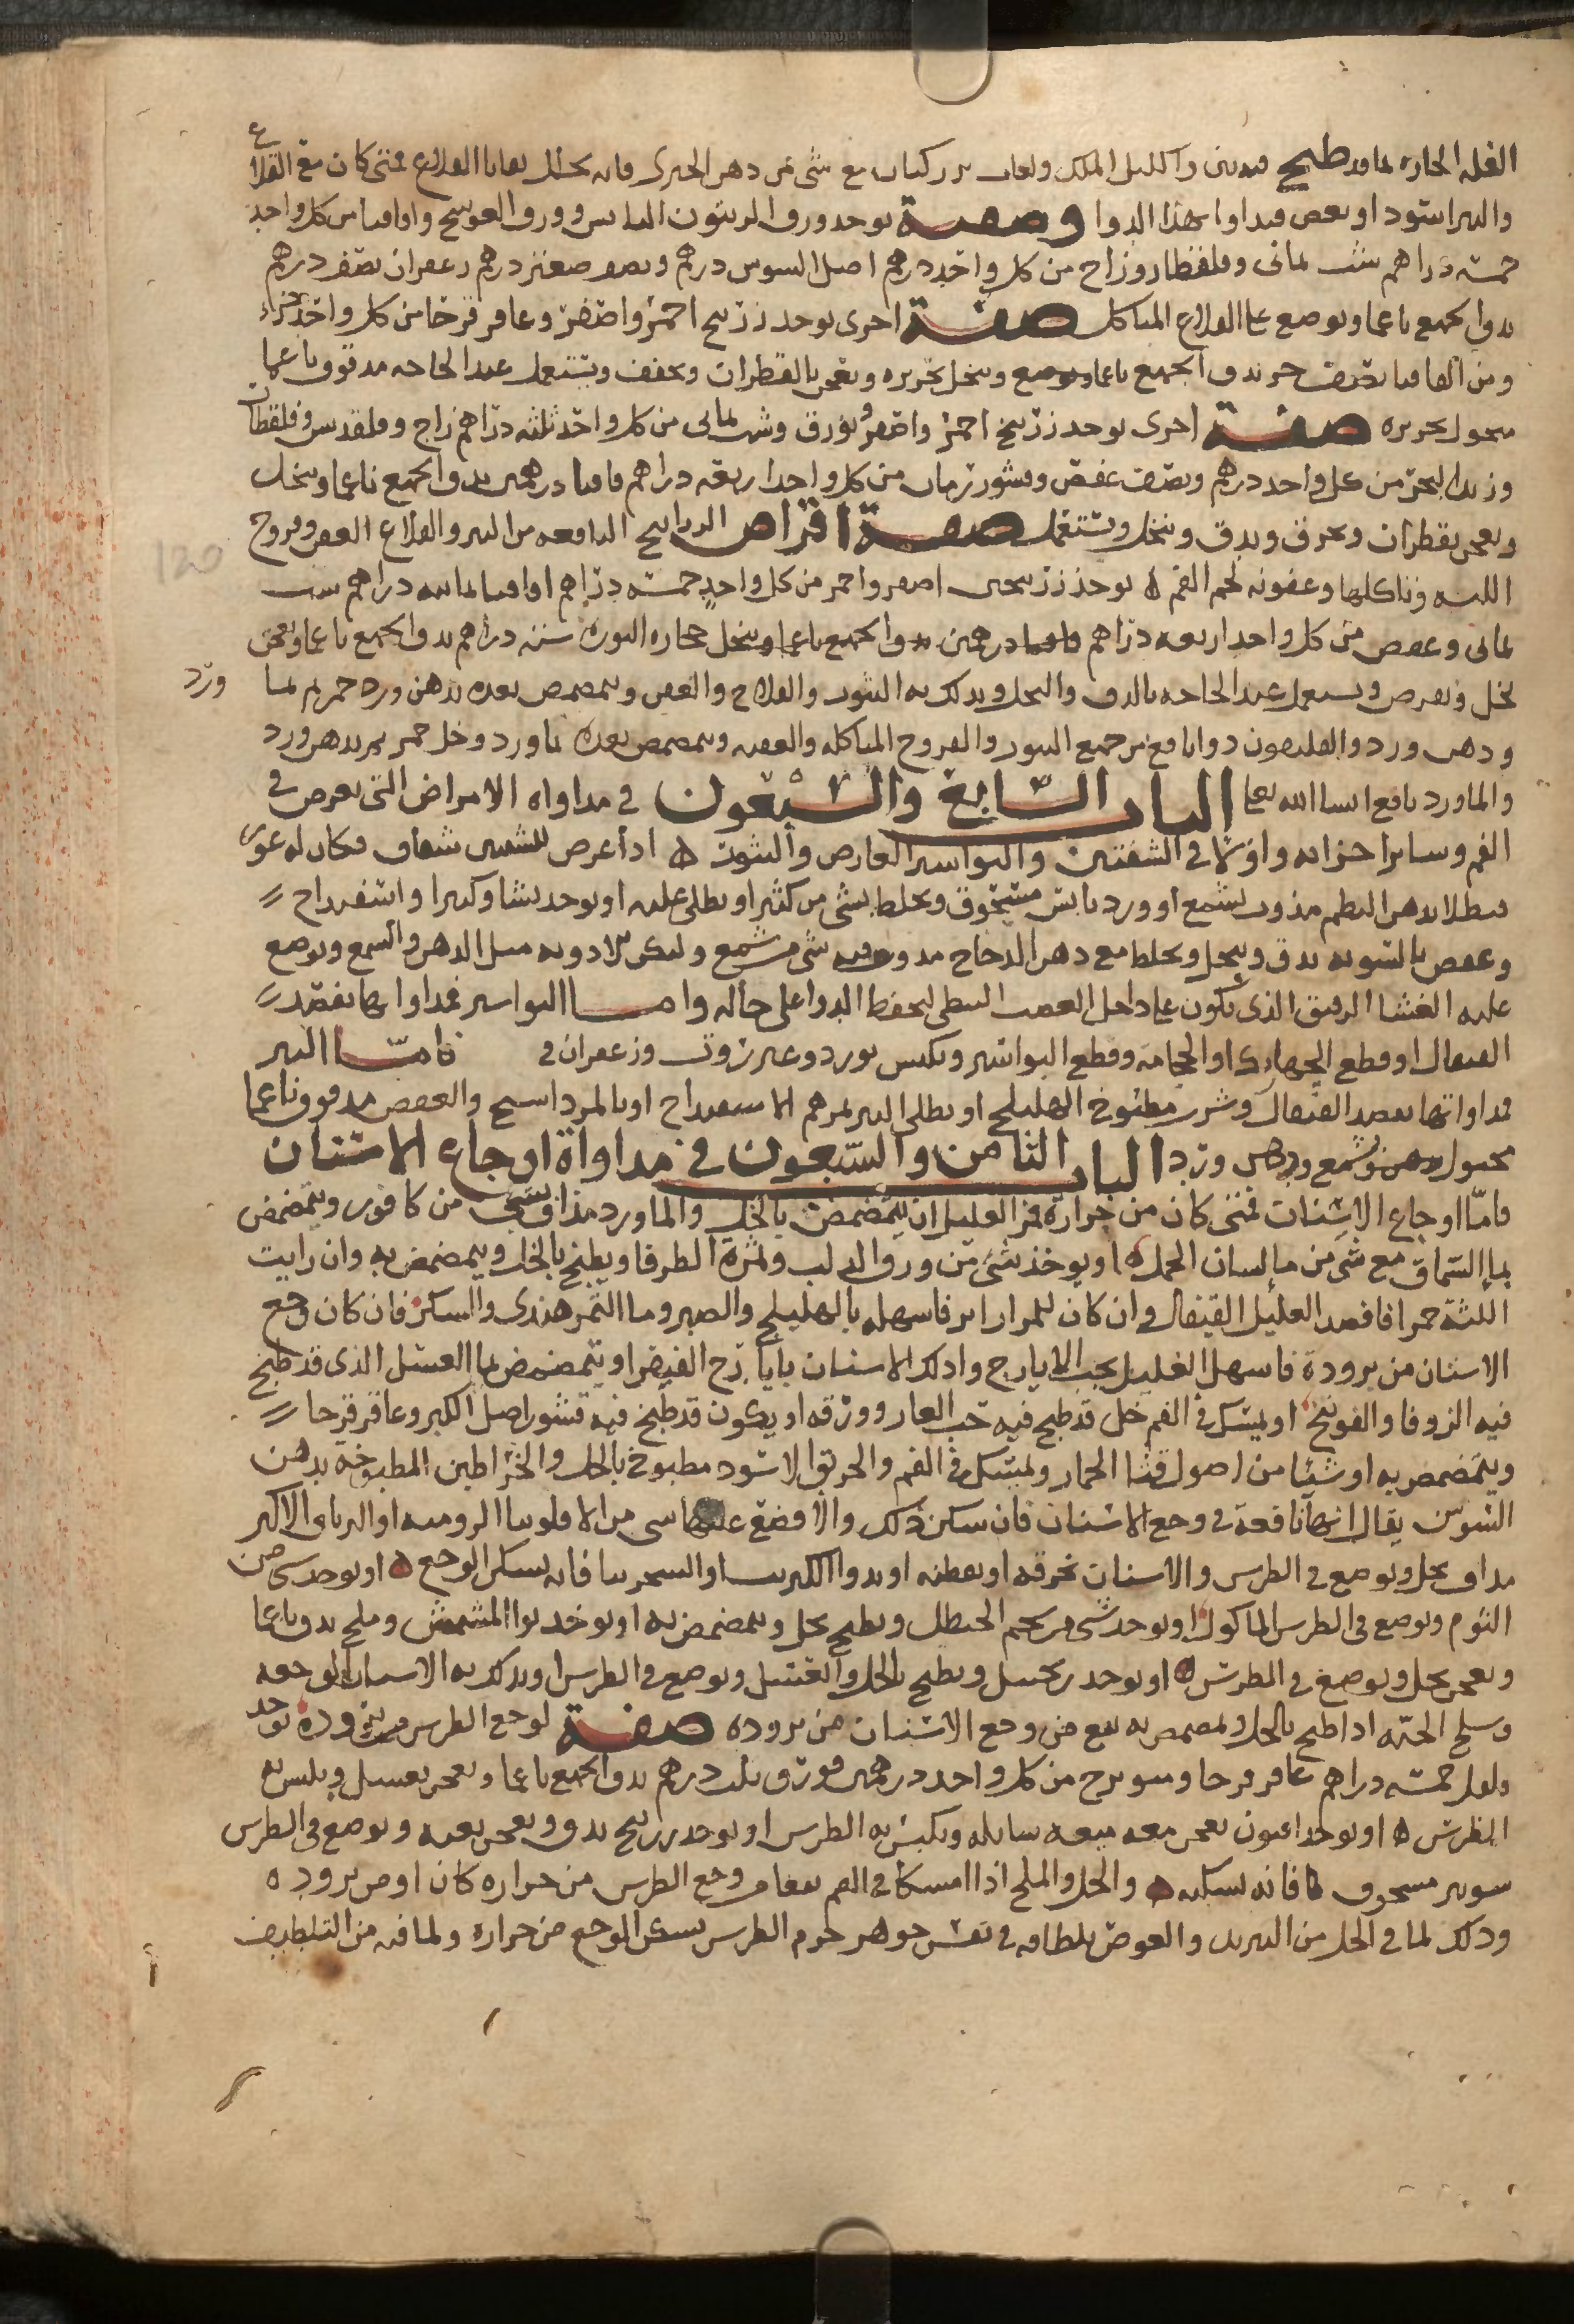 القله الحاره بماء قد طبخ فيه تين واكليل الملك ولعاب بزر كتان مع شي من دهن الخيرى فانه يحلل بقايا القلاع فمتى كان مع القلاع
والبثر اسود او بعض فيداوا بهذا الدوا وصفته يوخذ ورق الزيتون اليابس وورق العوسج واقاقيا من كل واحد
خمسة دراهم شب يمانى وقلقطار وزاج من كل واحد درهم اصل السوس درهم ونصف صعتر درهم زعفران نصف درهم
يدق الجميع ناعما ويوضع على القلاع المتاكل صفة اخرى يوخذ زرنيخ احمر واصفر وعاقر قرحا من كل واحد جزء
ومن القاقيا نصف جز يدق الجميع ناعما وينخل بحريره ويعجن بالقطران ويجفف ويستعمل عند الحاجه مدقوق ناعما
منخول بحريره صفة اخرى يوخذ زرنيخ احمر واصفر وبورق وشب يمانى من كل واحد ثلثه دراهم زاج وقلقديس وقلقطار
وزبد البحر من كل واحد درهم ونصف عفص وقشور رمان من كل واحد اربعه دراهم قاقيا درهمين يدق الجميع ناعما وينخل
ويعجن بقطران ويحرق ويدق وينخل ويستعمل صفة اقراص الزرانيخ النافعه من البثر والقلاع العفن وقروح
اللثه وتاكلها وعفونه لحم الفم ه يوخذ زرنيخين اصفر واحمر من كل واحد خمسه دراهم اقاقيا ثمانيه دراهم شب
يمانى وعفص من كل واحد اربعه دراهم حجاره النوره سته دراهم يدق الجميع ناعما ويعجن
بخل ويقرص ويستعمل عند الحاجه بالدق والنخل ويدلك به البثور والقلاع والعفن ويتمضمض بعده بدهن ورد خمر ثم بما ورد
ودهن ورد والقلديقون دوا نافع من جميع البثور والقروح المتاكله والعفنه ويتمضمض بعده بماورد وخل خمر ثم بدهن ورد
والماورد نافع انشا الله تعا الباب السابع والسبعون فى مداواه الامراض التى تعرض فى
الفم وساير اجزائه واولا فى الشفتين والبواسير العارض والبثور ه اذا عرض للشفتين شقاق فكان له غور
فيطلا بدهن البطم مذوب بشمع او ورد يابس مسحوق ويخلط بشى من كثيرا ويطلى عليه او يوخذ نشا وكثيرا واسفيداج
وعفص بالسويه يدق وينخل ويخلط مع دهن الدجاج مدوف فيه شى من شمع وليكن للادويه مثل الدهن والشمع ويوضع
عليه الغشا الرقيق الذى يكون على داخل القصب النبطى ليحفظ الدوا على حاله واما البواسير فمداواتها بفصد
القيفال او قطع الجهارك او الحجامه وقطع البواسير وتكبس بورد وعنزروت وزعفران فى فاما البثر
فمداواتها بفصد القيفال وشرب مطبوخ الهليلج او يطلى البثر بمرهم الاسفيداج او بالمرداسنج والعفص مدقوق ناعما
معمول بشمع ودهن ورد الباب الثامن والسبعون فى مداواة اوجاع الاسنان
فاما اوجاع الاسنان فمتى كان من حرارة فمر العليل ان يتمضمض بالخل والماورد مذاف بشى من كافور ويتمضمض
بماء السماق مع شى من ماء لسان الحمل ه او يوخذ شى من ورق الدلب وثمرة الطرفا ويطبخ بالخل ويتمضمض به وان رايت
اللثة حمرا فافصد العليل القيفال وان كان للمرار اثر فاسهله بالهليلج والصبر وما التمر هندى والسكر فان كان وجع
الاسنان من برودة فاسهل العليل بحب الايارج وادلك الاسنان بايارج الفيقرا ويتمضمض بما العسل الذى قد طبخ
فيه الزوفا والفوتنج او يمسك فى الفم خل قد طبخ فيه حب الغار وورقه او يكون قد طبخ فيه قشور اصل الكبر وعاقر قرحا
ويتمضمض به او شيئا من اصول قثا الحمار وليمسك فى الفم والخربق الاسود مطبوخ بالخل والخراطين المطبوخة بدهن
السوسن يقال انها نافعة فى وجع الاسنان فان سكن ذلك والا فضع عليها شى من الافلونيا الروميه او الترياق الاكبر
مداف بخل ويوضع فى الطرس والاسنان بخرقه او بقطنه او بدوا الكبريت او السجزينا فانه يسكن الوجع ه او يوخذ شى من
الثوم ويوضع فى الطرس الماكول او يوخذ شى من شحم الحنظل ويطبخ بخل ويتمضمض به او يوخذ نوا المشمش وملح يدق ناعما
ويعجن بخل ويوضع فى الطرس ه او يوخذ زنجبيل ويطبخ بالخل والعسل ويوضع فى الطرس او يدلك به الاسنان الوجعه
وسلخ الحيه اذا طبخ بالخل وتمضمض به نفع من وجع الاسنان من بروده صفة لوجع الطرس من بروده يوخذ
فلفل خمسه دراهم عاقر قرحا وميويزج من كل واحد درهمين بورق ثلث درهم يدق الجميع ناعما ويعجن بعسل ويلبس به
الطرس ه او يوخذ افيون يعجن معه ميعه سايله ويكبس به الطرس او يوخذ زرنيخ يدق ويعجن بميعه ويوضع فى الطرس
شونيز مسحوق فانه يسكنه ه والخل والملح اذا امسكا فى الفم نفعا من وجع الطرس من حراره كان او من بروده
وذلك لما فى الخل من التبريد والغوص بلطافه فى نفس جوهر جرم الطرس يسكن الوجع من حراره ولما فيه من التلطيف